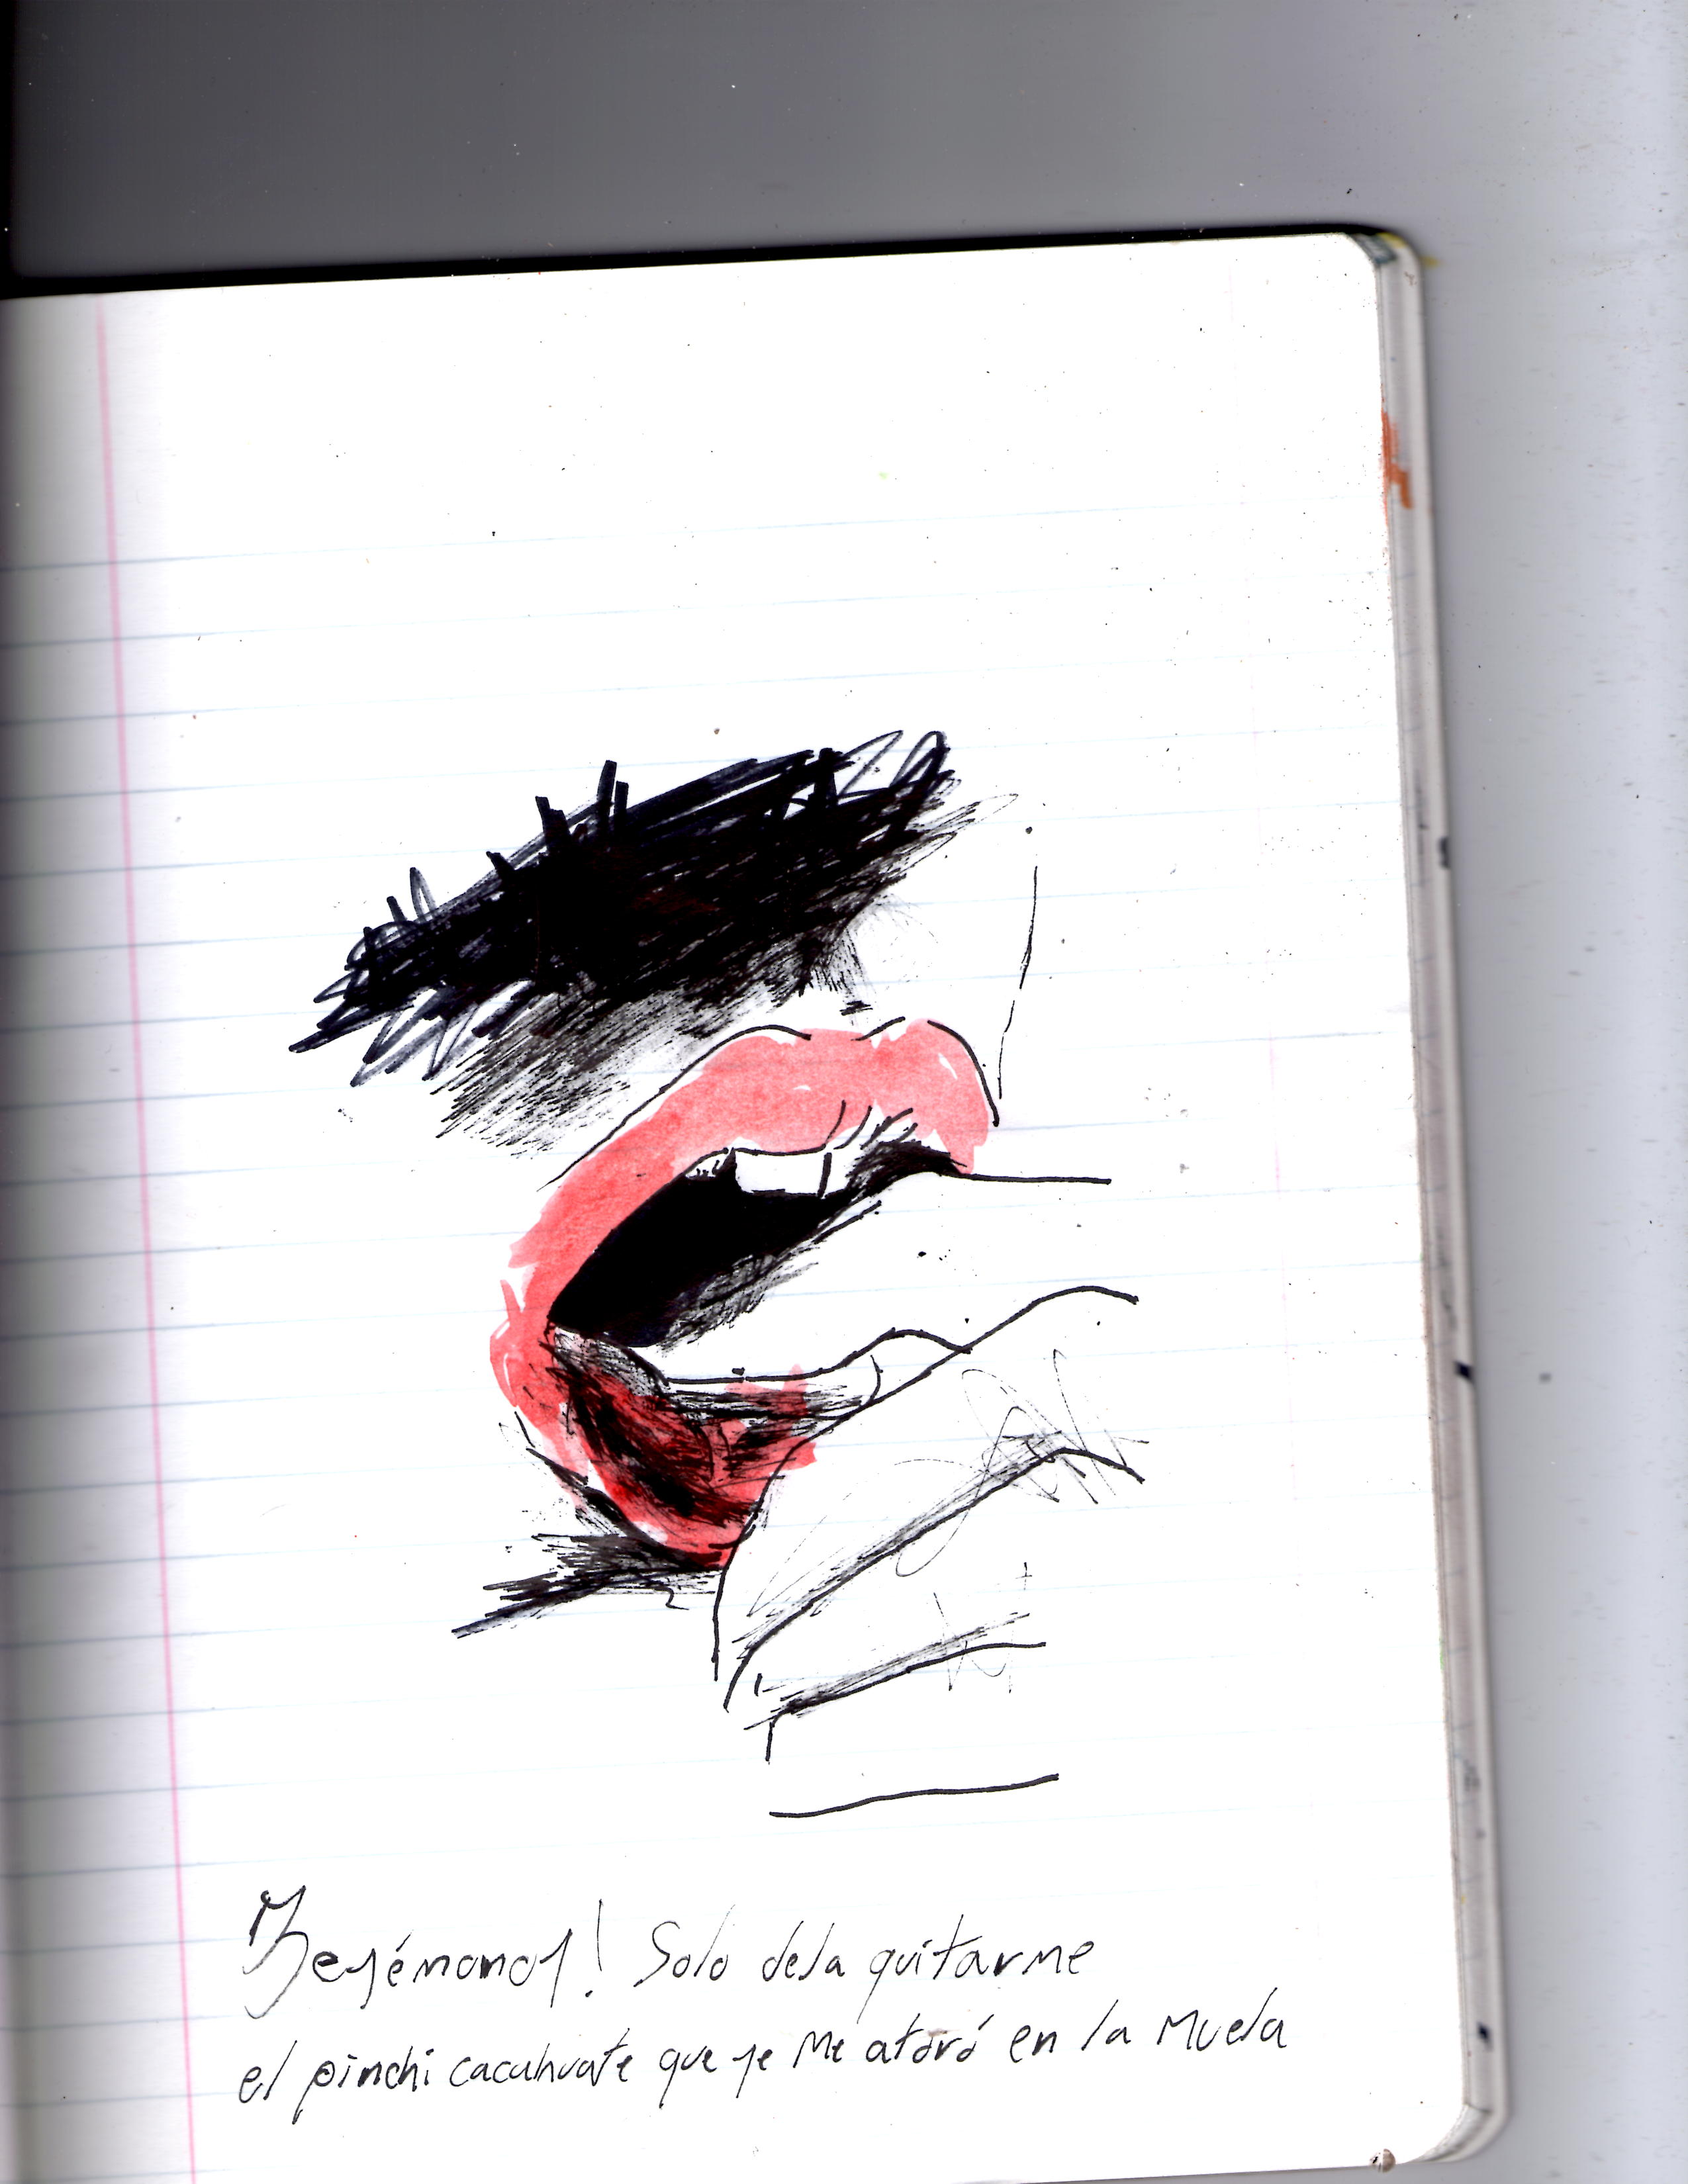 Besémonos! Solo deja quitarme
el pinchi cacahuate que se me atoró en la muela